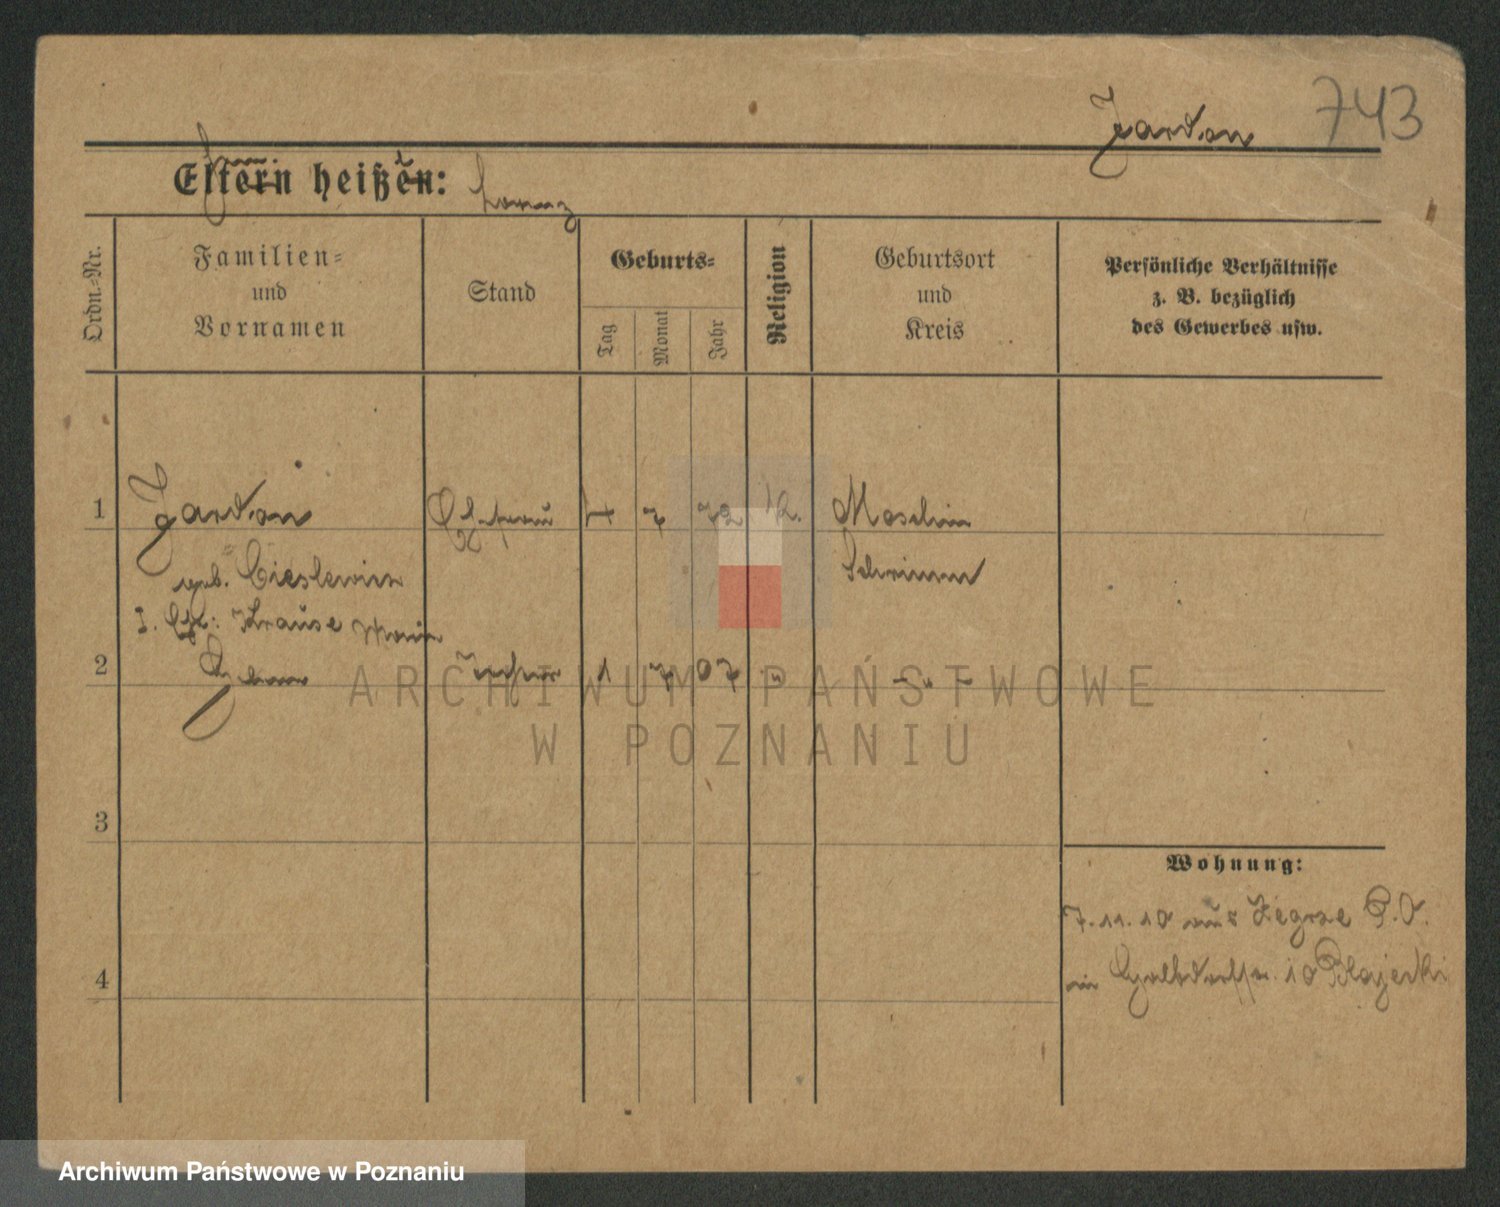 743
Jardon
Eltern heißen:
Ordn.-Nr.
Familien-
und
Vornamen
Stand
Geburts-
Tag
Monat
Jahr
Religion
Geburtsort
und
Kreis
Persönliche Verhältnisse
z. B. bezüglich
des Gewerbes usw.
1 Jardon 7 72 k. Moschin
geb. Cieslewicz Schrimm
I. Krause Maria
2 Tochter 1 7 07 " - " -
3
4
Wohnung:
7.11.10 aus Zegrze P.O.
in 10 Blajecki
ARCHIWUM PAŃSTWOWE
W POZNANIU
Archiwum Państwowe w Poznaniu